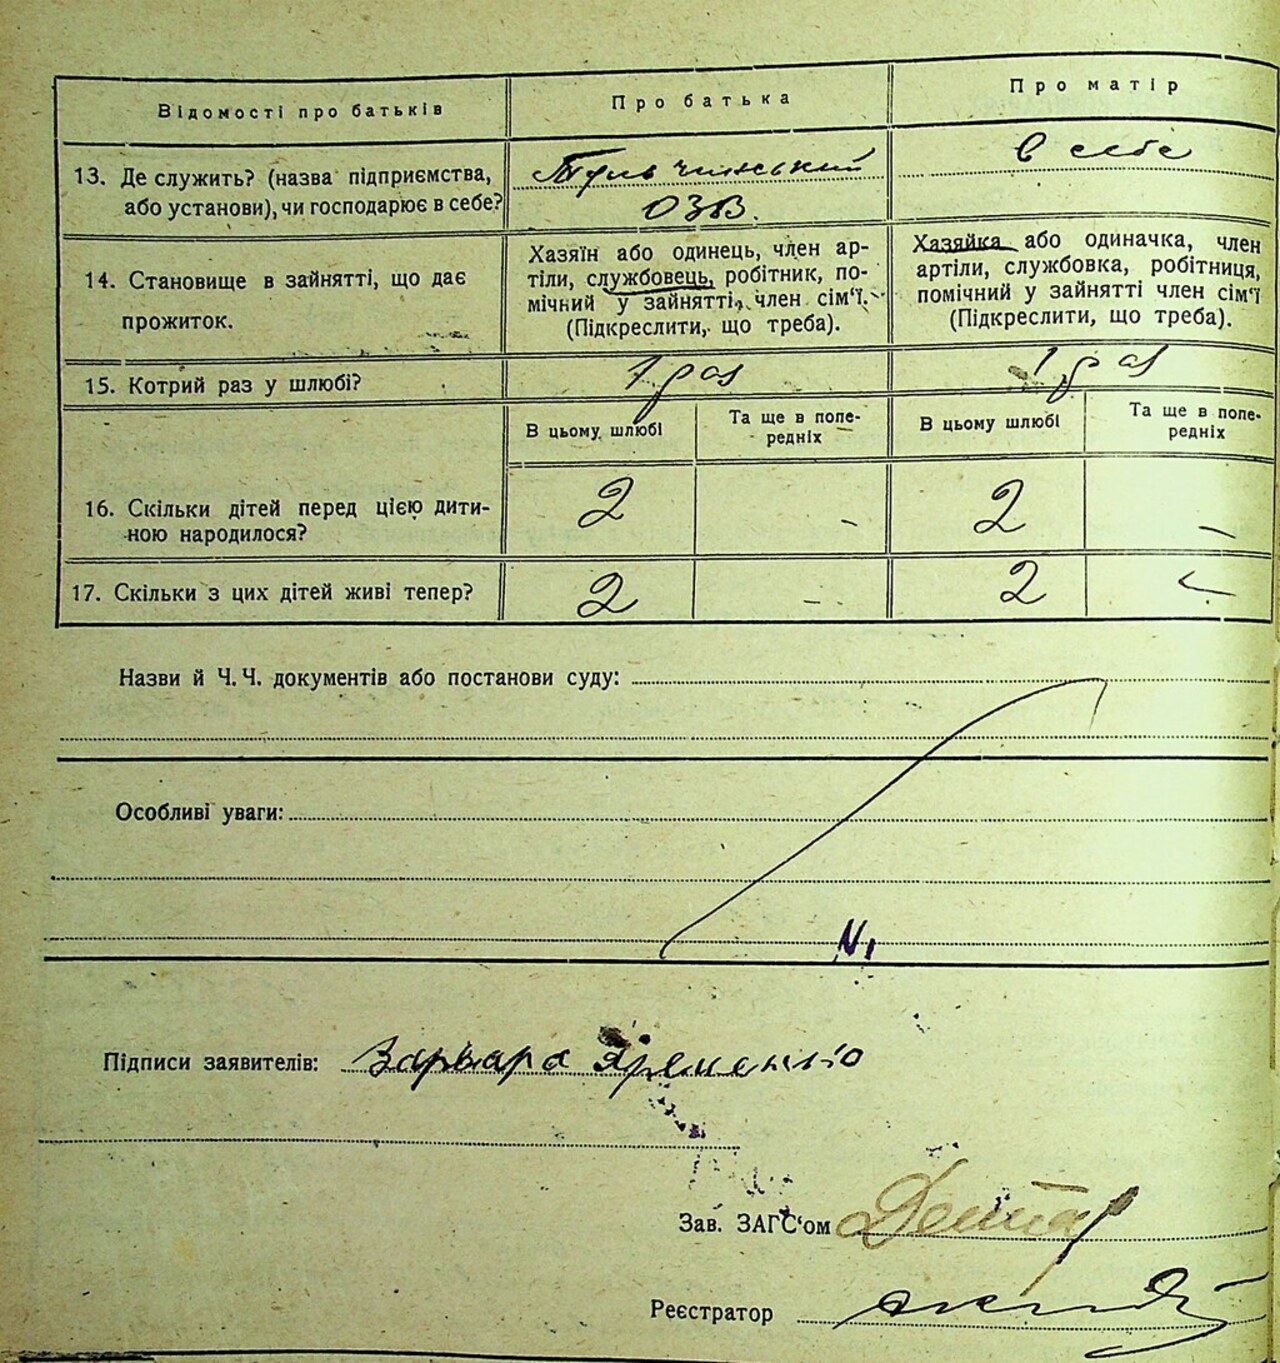 Відомості про батьків
Про батька
Про матір
13. Де служить? (назва підприємства,
або установи), чи господарює в себе?
Тульчинський
ОЗВ.
в себе
14. Становище в зайнятті, що дає
прожиток.
Хазяїн або одинець, член ар-
тіли, службовець, робітник, по-
мічний у зайнятті, член сім'ї.
(Підкреслити, що треба).
Хазяйка або одиначка, член
артіли, службовка, робітниця,
помічний у зайнятті член сім'ї
(Підкреслити, що треба).
15. Котрий раз у шлюбі?
1 раз
1 раз
В цьому шлюбі
Та ще в попе-
редніх
В цьому шлюбі
Та ще в попе-
редніх
16. Скільки дітей перед цією дити-
ною народилося?
2
-
2
-
17. Скільки з цих дітей живі тепер?
2
-
2
-
Назви й Ч. Ч. документів або постанови суду:
Особливі уваги:
N 1
Підписи заявителів: Варвара Яременко
Зав. ЗАГС'ом
Реєстратор